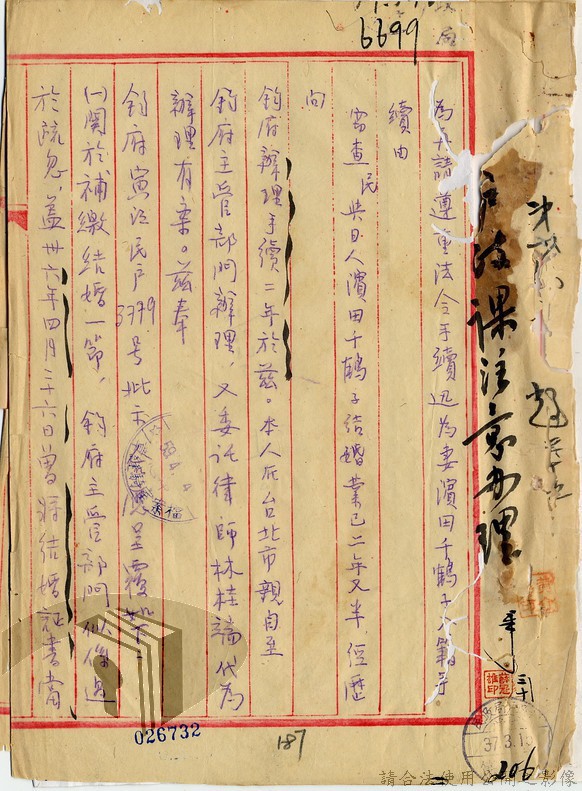 6699
戶政課注意办理
為申請遵重法令手續迅為妻濱田千鶴子入籍手
續由
窃查民與日人濱田千鶴子結婚業已二年又半，經歷
向
鈞府辦理手續二年於茲。本人反台北市親自至
鈞府主管部門辦理，又委託律師林桂端代為
辦理有案。茲奉
鈞府寅江民戶3779号批示
呈覆如下：
(一)関於補繳結婚一節，鈞府主管部門似係過
於疏忽，蓋卅六年四月二十六日曾將結婚証書當
37.3.15
206
026732
187
請合法使用公開之影像